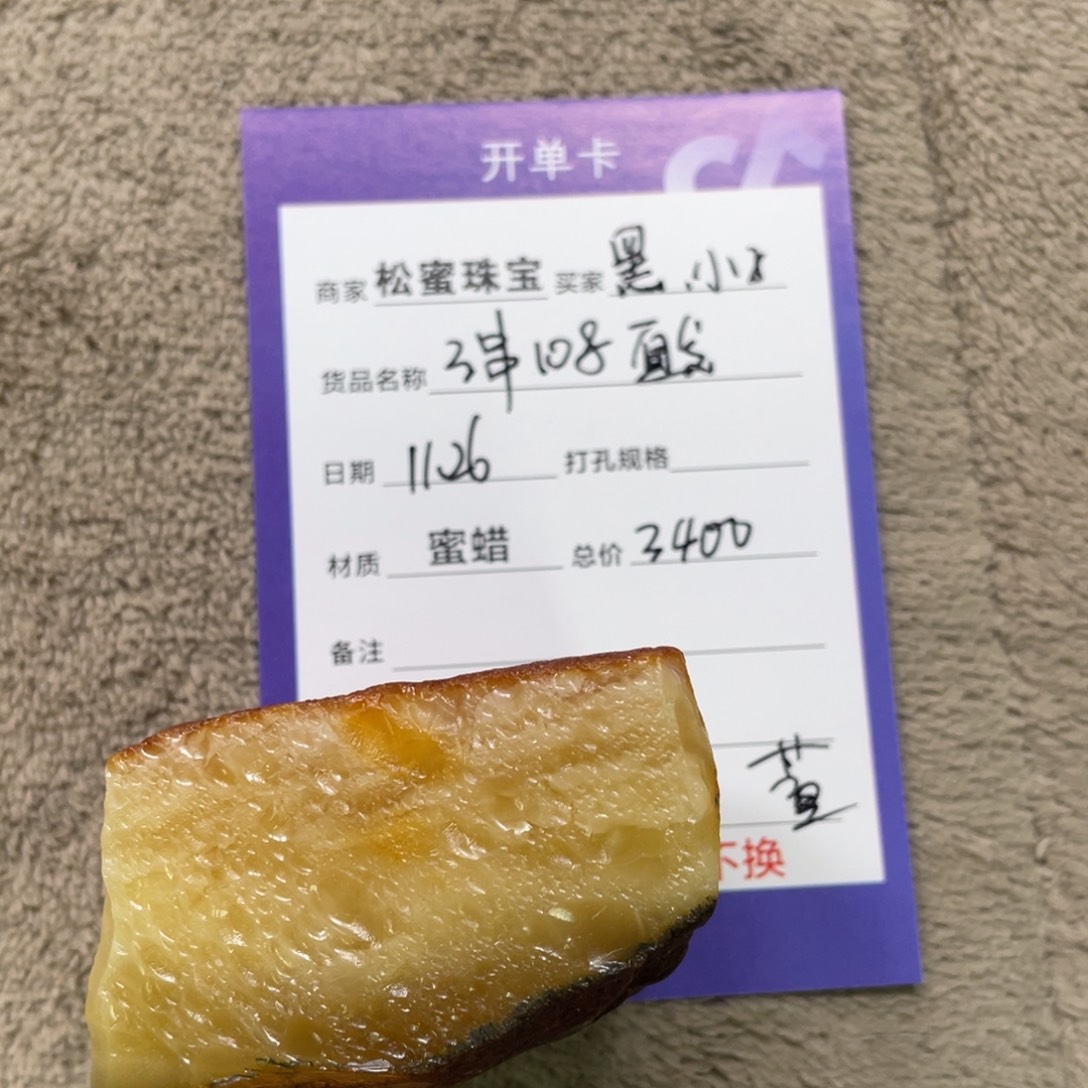 开单卡
商家 松蜜珠宝 买家 黑小
货品名称 3串108 直发
日期 11.26 打孔规格
材质 蜜蜡 总价 3400
备注
不换